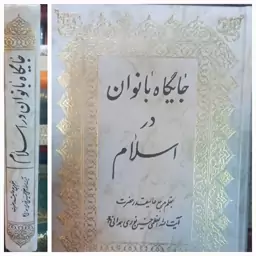 جایگاه بانوان در اسلام
جایگاه بانوان
در
اسلام
بقلم مرجع عالیقدر حضرت
آیت الله العظمی حسین نوری همدانی